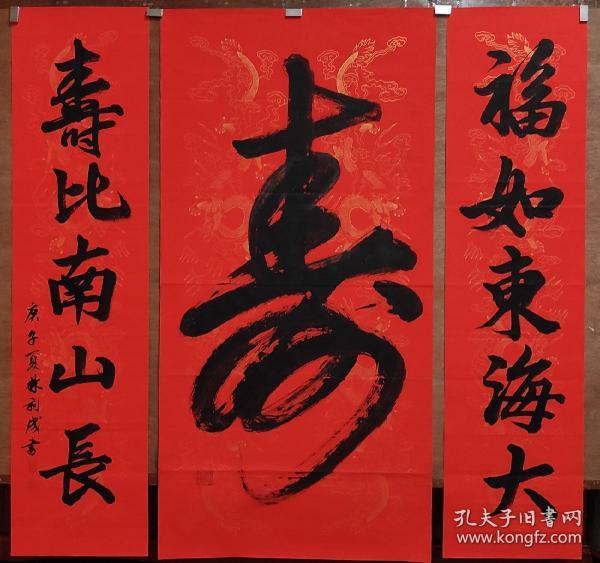 福如東海大
壽
壽比南山長
庚子夏林利成書
孔夫子旧書网
www.kongfz.com